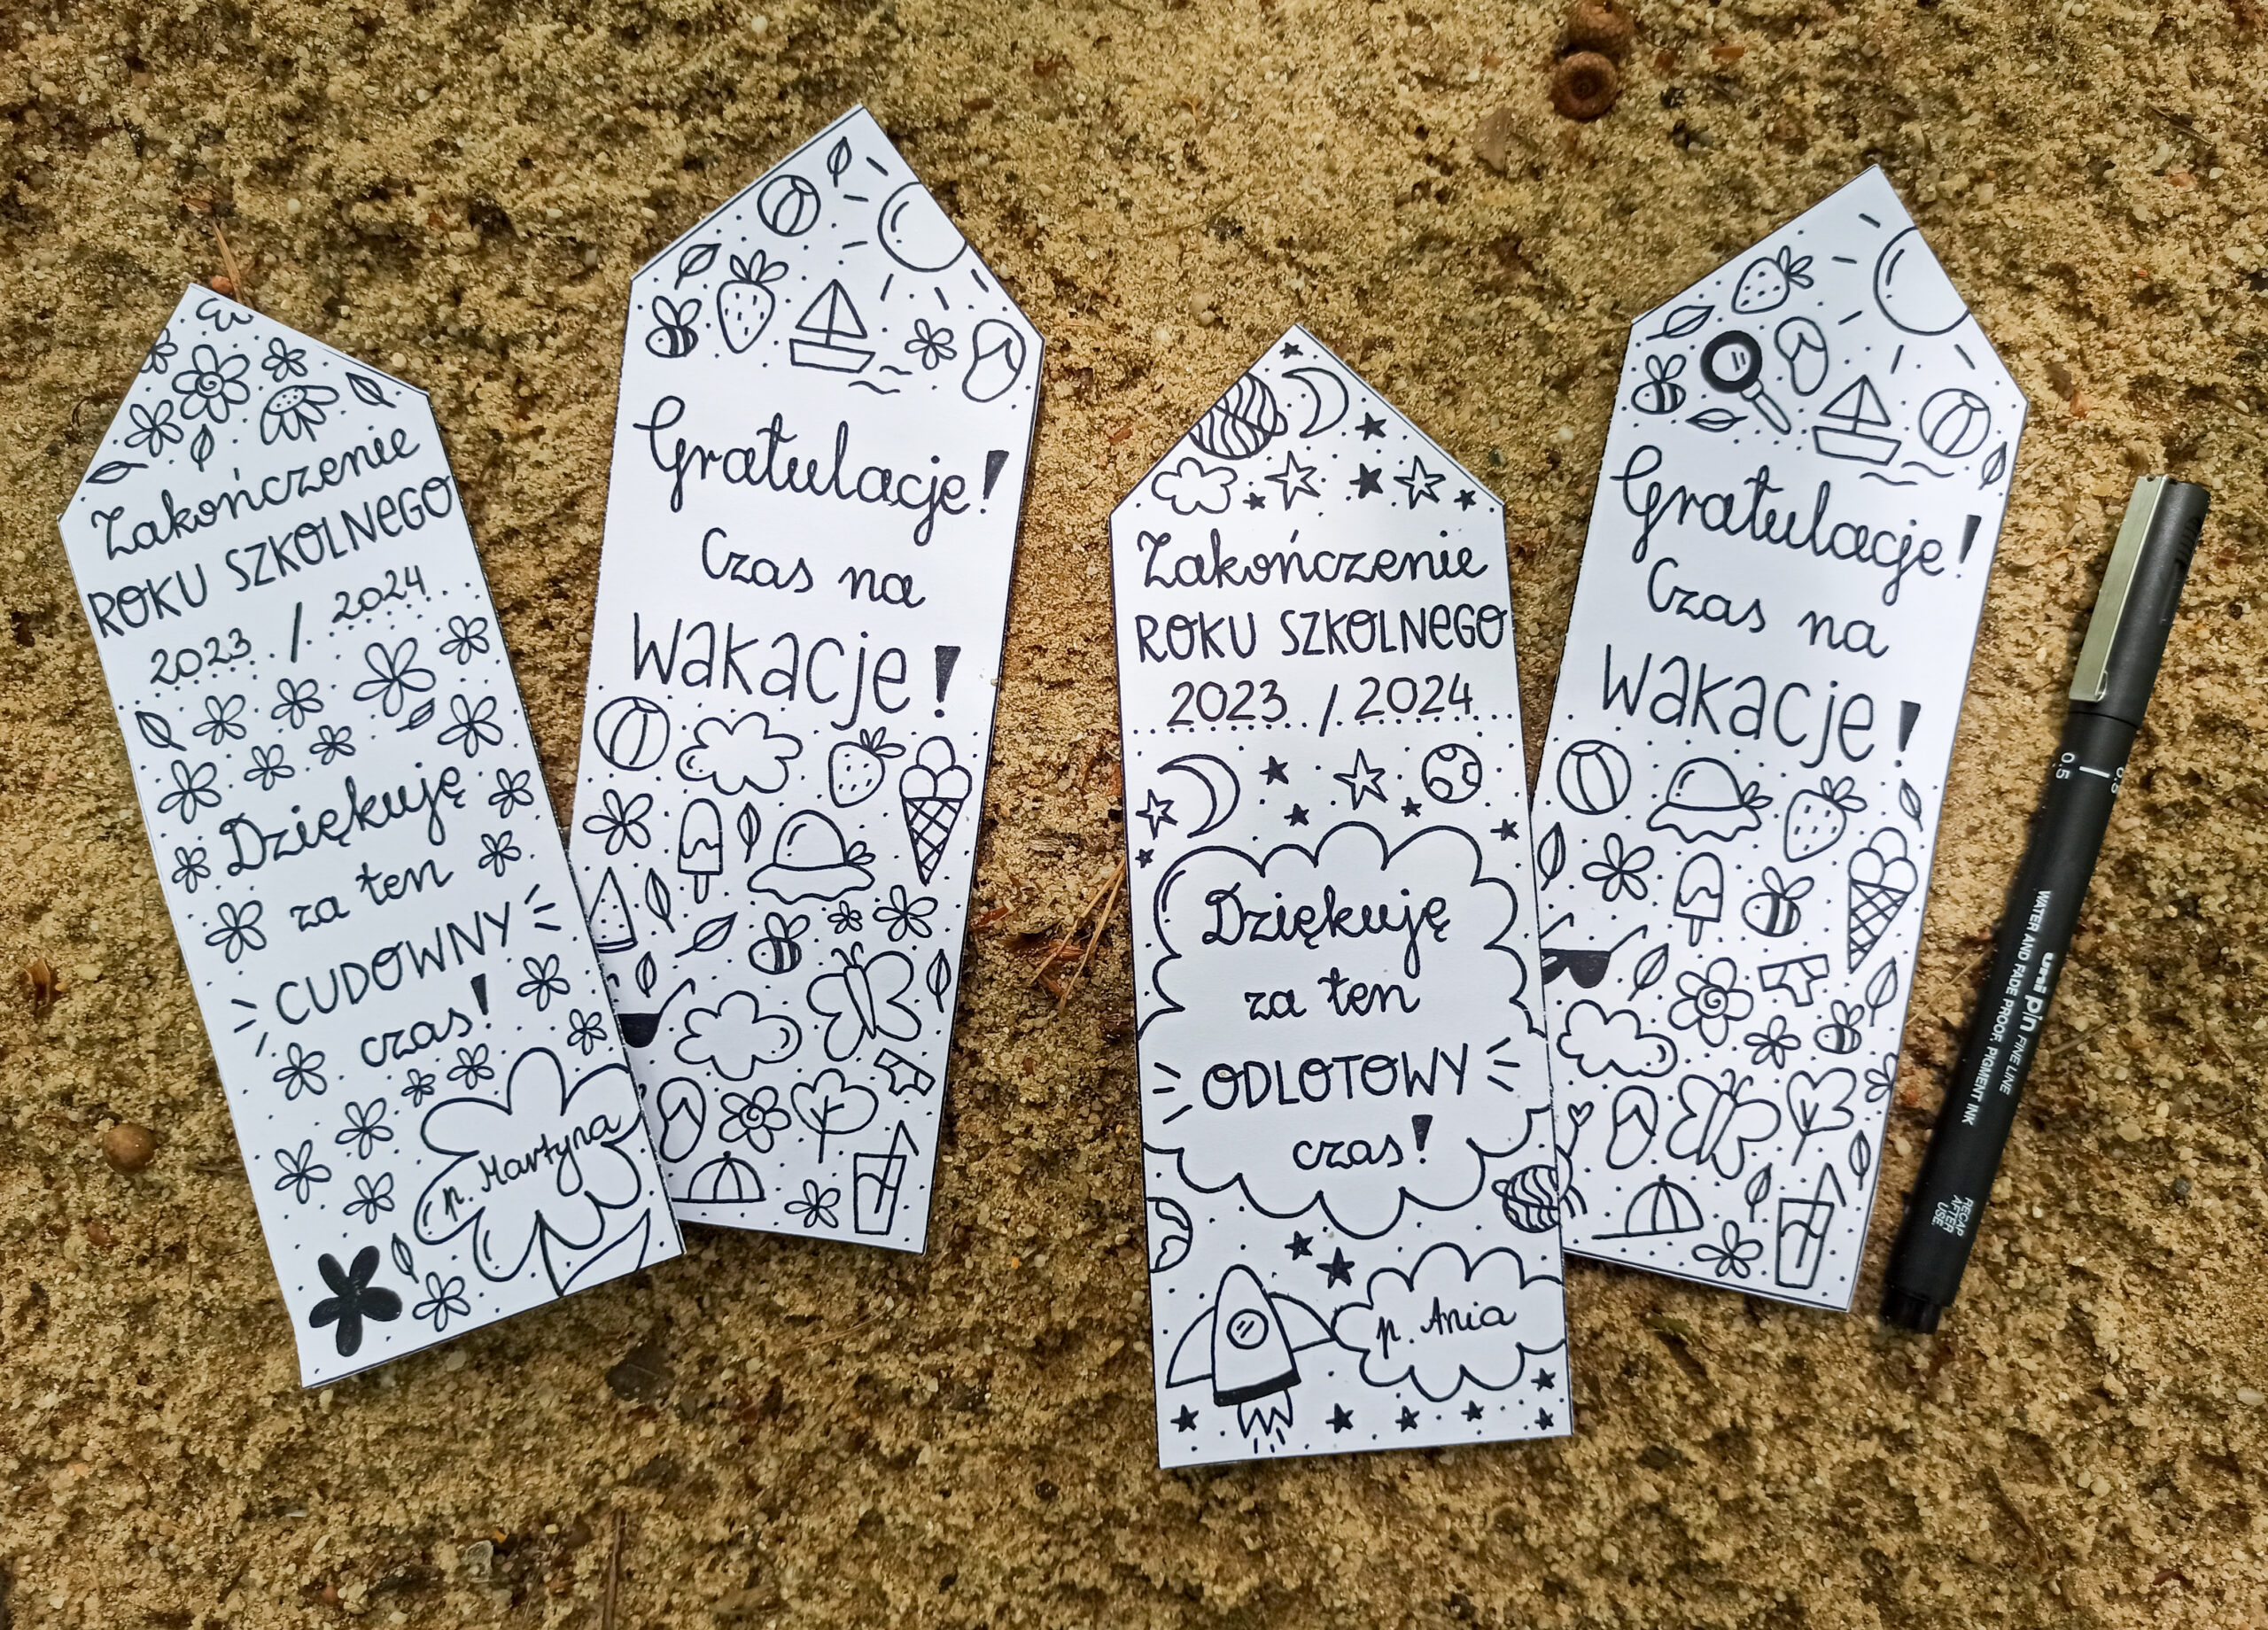 Zakończenie
ROKU SZKOLNEGO
2023 / 2024
Dziękuję
za ten
CUDOWNY
czas!
p. Martyna
Gratulacje!
Czas na
wakacje!
Zakończenie
ROKU SZKOLNEGO
2023 / 2024
Dziękuję
za ten
ODLOTOWY
czas!
p. Ania
Gratulacje!
Czas na
wakacje!
0.5
0.5
uni pin FINE LINE
WATER AND FADE PROOF, PIGMENT INK
RECAP
AFTER
USE